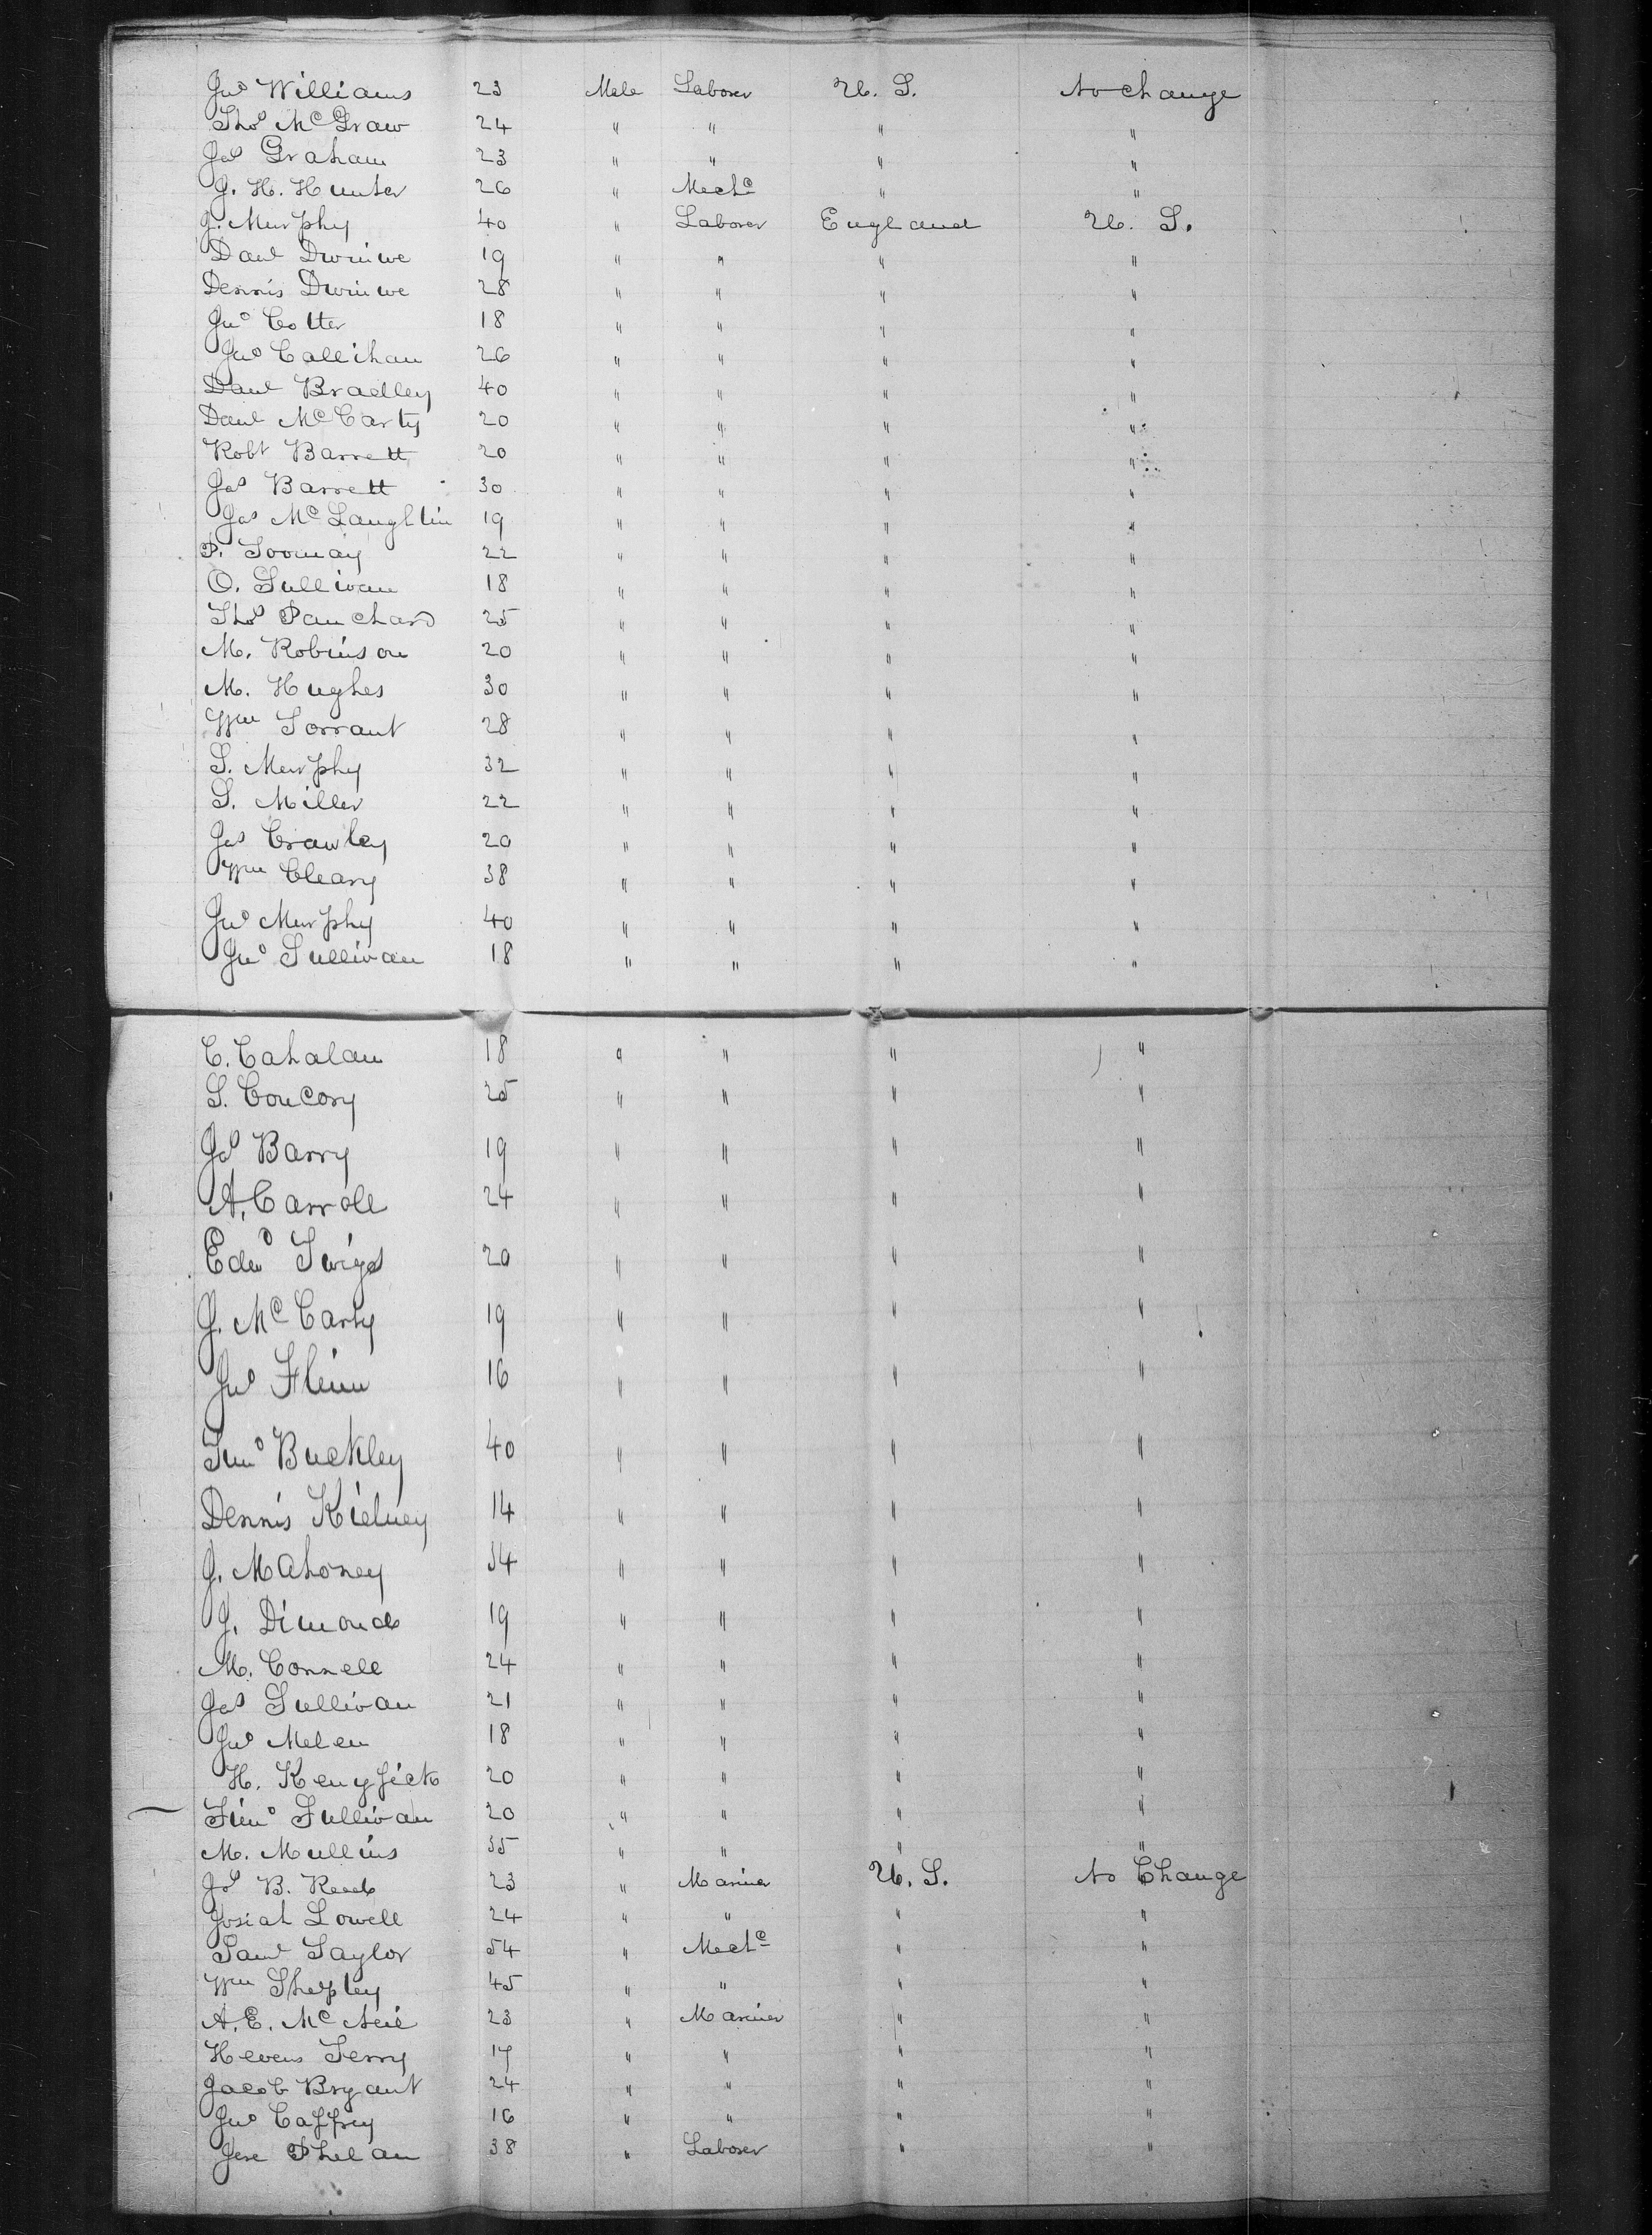 Jno Williams 23 Male Laborer U. S. No change
Thos McGraw 24 " " " "
Jas Graham 23 " " " "
J. H. Hunter 26 " Mechc " "
J. Murphy 40 " Laborer England U. S.
Danl Dwinwe 19 " " " "
Dennis Dwinwe 28 " " " "
Jno Cotter 18 " " " "
Jno Callihan 26 " " " "
Danl Bradley 40 " " " "
Danl McCarty 20 " " " "
Robt Barrett 20 " " " "
Jas Barrett 30 " " " "
Jas McLaughlin 19 " " " "
P. Toomay 22 " " " "
O. Sullivan 18 " " " "
Thos Panchard 25 " " " "
M. Robinson 20 " " " "
M. Hughes 30 " " " "
Wm Torrant 28 " " " "
S. Murphy 32 " " " "
S. Miller 22 " " " "
Jas Crawley 20 " " " "
Wm Cleary 38 " " " "
Jno Murphy 40 " " " "
Jno Sullivan 18 " " " "
C. Cahalan 18 " " " "
S. Concory 25 " " " "
Jas Barry 19 " " " "
A. Carroll 24 " " " "
Edwd Twigs 20 " " " "
J. McCarty 19 " " " "
Jno Flinn 16 " " " "
Timo Buckley 40 " " " "
Dennis Kielney 14 " " " "
J. Mahoney 34 " " " "
J. Dimond 19 " " " "
M. Connell 24 " " " "
Jas Sullivan 21 " " " "
Jno Melen 18 " " " "
H. Kenyfick 20 " " " "
Timo Sullivan 20 " " " "
M. Mullins 35 " " " "
Jos B. Reed 23 " Mariner U. S. No Change
Josiah Lowell 24 " " " "
Saml Taylor 54 " Mechc " "
Wm Shepley 45 " " " "
A. E. McNeil 23 " Mariner " "
Hevens Terry 17 " " " "
Jacob Bryant 24 " " " "
Jno Caffrey 16 " " " "
Jere Phelan 38 " Laborer " "